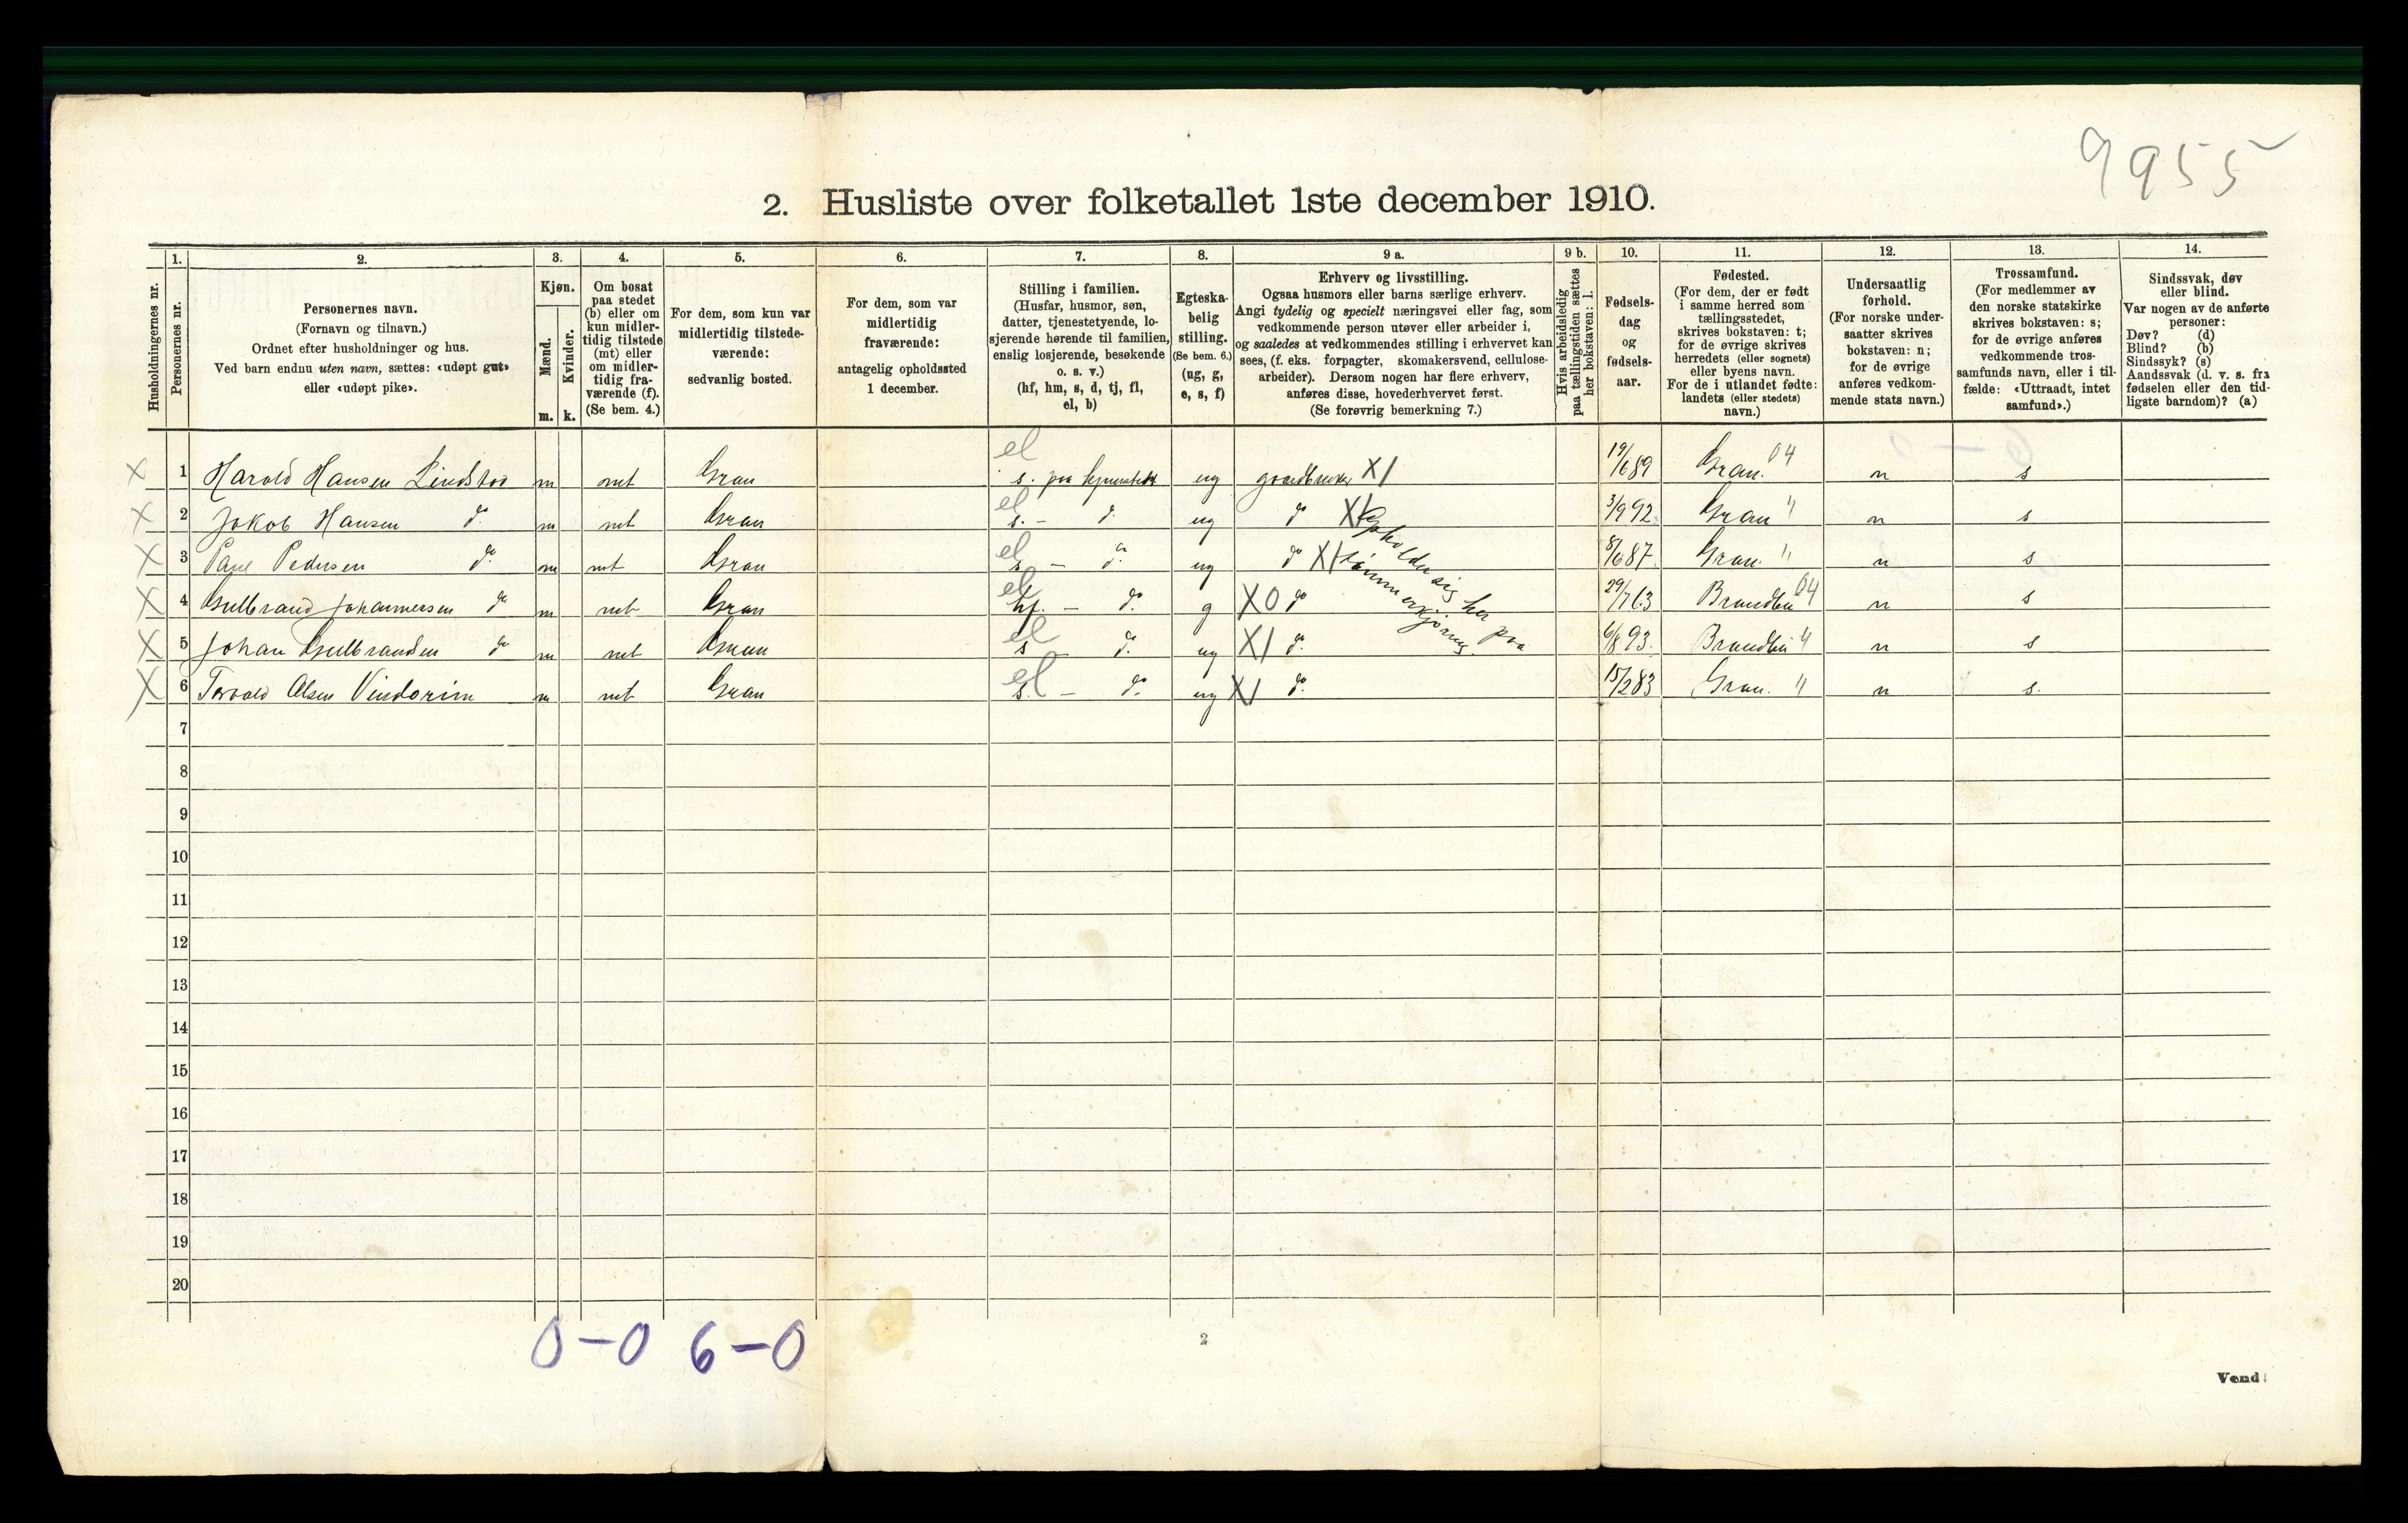 9955
2. Husliste over folketallet 1ste december 1910.
Husholdningernes nr.
1.
Personernes nr.
2.
Personernes navn.
(Fornavn og tilnavn.)
Ordnet efter husholdninger og hus.
Ved barn endnu uten navn, sættes: «udøpt gut»
eller «udøpt pike».
3.
Kjøn.
Mænd.
m.
Kvinder.
k.
4.
Om bosat
paa stedet
(b) eller om
kun midler-
tidig tilstede
(mt) eller
om midler-
tidig fra-
værende (f).
(Se bem. 4.)
5.
For dem, som kun var
midlertidig tilstede-
værende:
sedvanlig bosted.
6.
For dem, som var
midlertidig
fraværende:
antagelig opholdssted
1 december.
7.
Stilling i familien.
(Husfar, husmor, søn,
datter, tjenestetyende, lo-
sjerende hørende til familien,
enslig losjerende, besøkende
o. s. v.)
(hf, hm, s, d, tj, fl,
el, b)
8.
Egteska-
belig
stilling.
(Se bem. 6.)
(ug, g,
e, s, f)
9 a.
Erhverv og livsstilling.
Ogsaa husmors eller barns særlige erhverv.
Angi tydelig og specielt næringsvei eller fag, som
vedkommende person utøver eller arbeider i,
og saaledes at vedkommendes stilling i erhvervet kan
sees, (f. eks. forpagter, skomakersvend, cellulose-
arbeider). Dersom nogen har flere erhverv,
anføres disse, hovederhvervet først.
(Se forøvrig bemerkning 7.)
9 b.
Hvis arbeidsledig
paa tællingstiden sættes
her bokstaven: l.
10.
Fødsels-
dag
og
fødsels-
aar.
11.
Fødested.
(For dem, der er født
i samme herred som
tællingsstedet,
skrives bokstaven: t;
for de øvrige skrives
herredets (eller sognets)
eller byens navn.
For de i utlandet fødte:
landets (eller stedets)
navn.)
12.
Undersaatlig
forhold.
(For norske under-
saatter skrives
bokstaven: n;
for de øvrige
anføres vedkom-
mende stats navn.)
13.
Trossamfund.
(For medlemmer av
den norske statskirke
skrives bokstaven: s;
for de øvrige anføres
vedkommende tros-
samfunds navn, eller i til-
fælde: «Uttraadt, intet
samfund».)
14.
Sindssvak, døv
eller blind.
Var nogen av de anførte
personer:
Døv? (d)
Blind? (b)
Sindssyk? (s)
Aandssvak (d. v. s. fra
fødselen eller den tid-
ligste barndom)? (a)
X 1 Harold Hansen m mt Gran el s. paa ug gaardbruker X1 19/6 89 Gran. 04 n s
X 2 Jakob Hansen do m mt Gran el s. - do ug do X1 3/9 92 Gran " n s
X 3 Paul Pedersen do m mt Gran el s - do ug do X1 8/6 87 Gran. " n s
X 4 Gulbrand Johannesen do m mt Gran el hf. - do g X0 do 29/7 63 Brandbu 04 n s
X 5 Johan Gulbrandsen do m mt Gran el s - do ug X1 do 6/8 93. Brandbu " n s
X 6 Torvald Olsen Vindorim m mt Gran el s. - do ug X1 do 15/2 83 Gran. " n s.
Opholder sig her paa
tømmerkjøring
7
8
9
10
11
12
13
14
15
16
17
18
19
20
0-0 6-0
2
Vend!